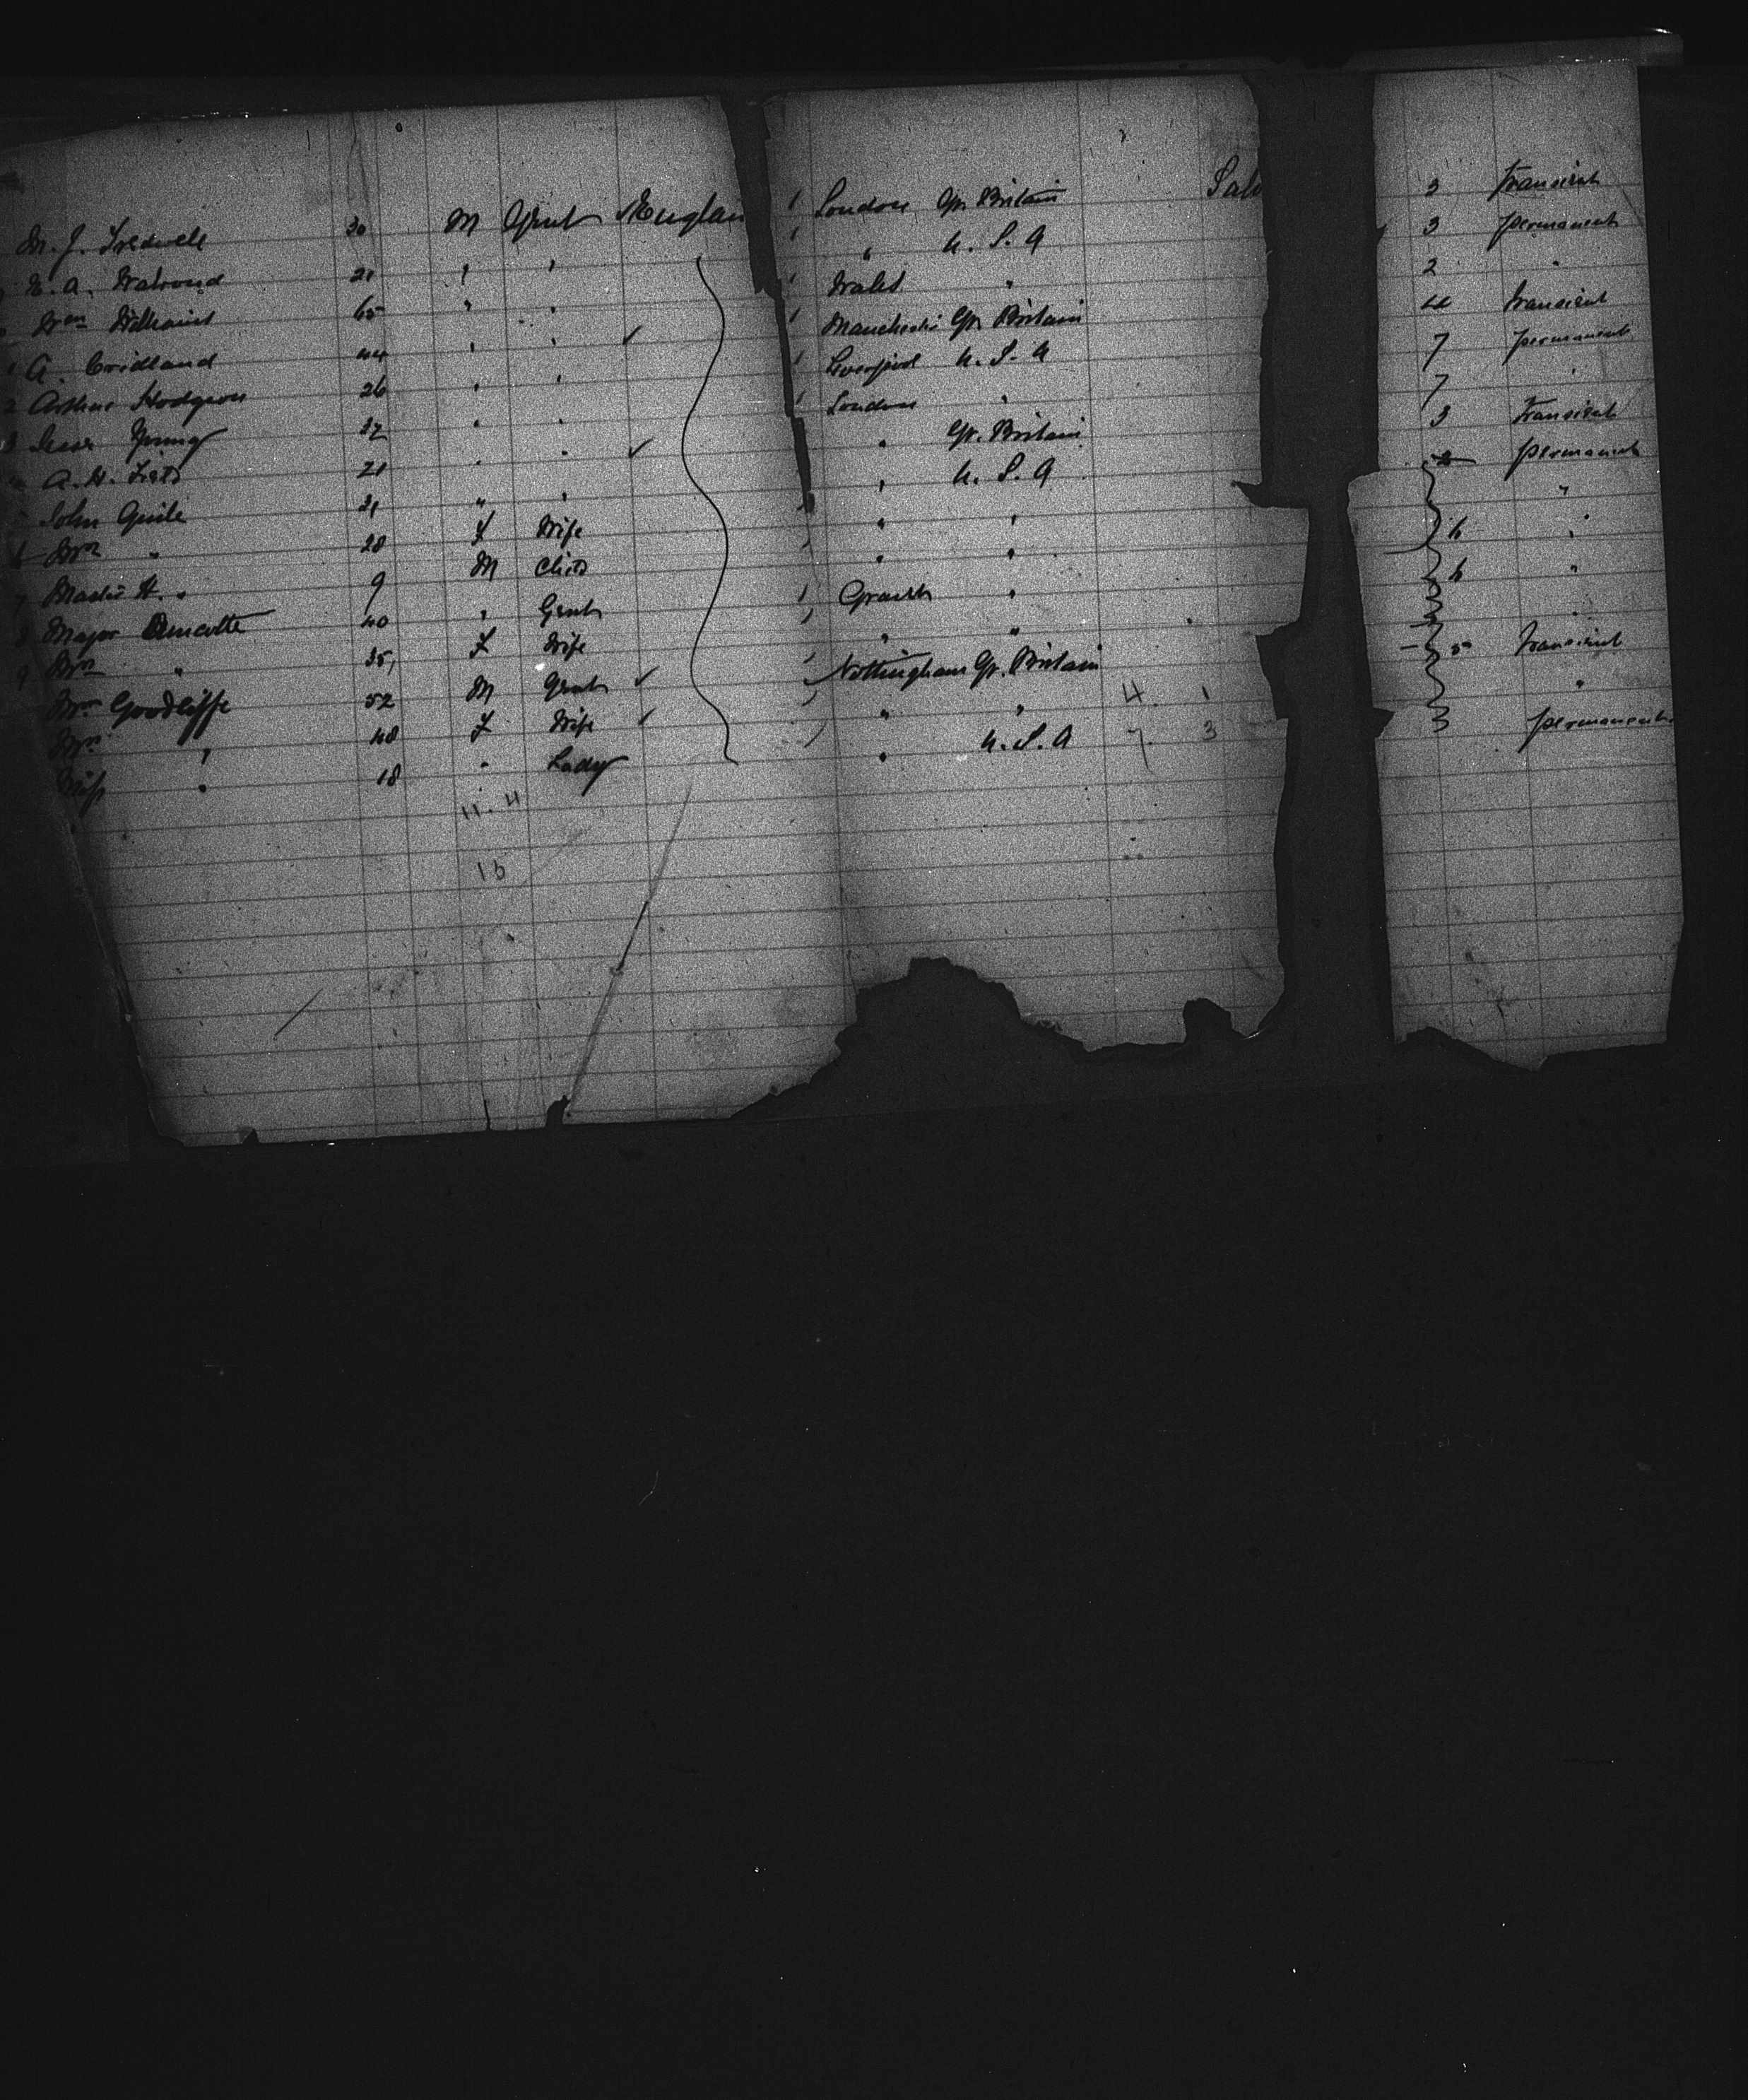 M. J. Tredwell 30 M Gent England 1 London Gr. Britain Salo 3 transient
E. A. Walrond 21 " " 1 " U. S. A 3 permanent
Wm Williams 65 " " 1 Wales " 2 "
1 A. Cridland 44 " " ✓ 1 Manchester Gr. Britain 4 transient
2 Arthur Hodgson 26 " " 1 Liverpool U. S. A 7 permanent
3 Young " " 1 London " 7 "
A. H. 21 " " ✓ " Gr. Britain 3 transient
John Guile 31 " " " U. S. A permanent
6 Mrs " 28 F Wife " " "
7 H. " 9 M Child " " 6 "
8 Major 40 " Gent 1 " 6 "
9 Mrs " 35 F Wife " " "
Wm Goodliffe 52 M Gent ✓ Nottingham Gr. Britain 5 transient
Mrs " 48 F Wife ✓ " " 4 1 "
Miss " 18 " Lady " U. S. A 7 3 permanent
11. 4
16